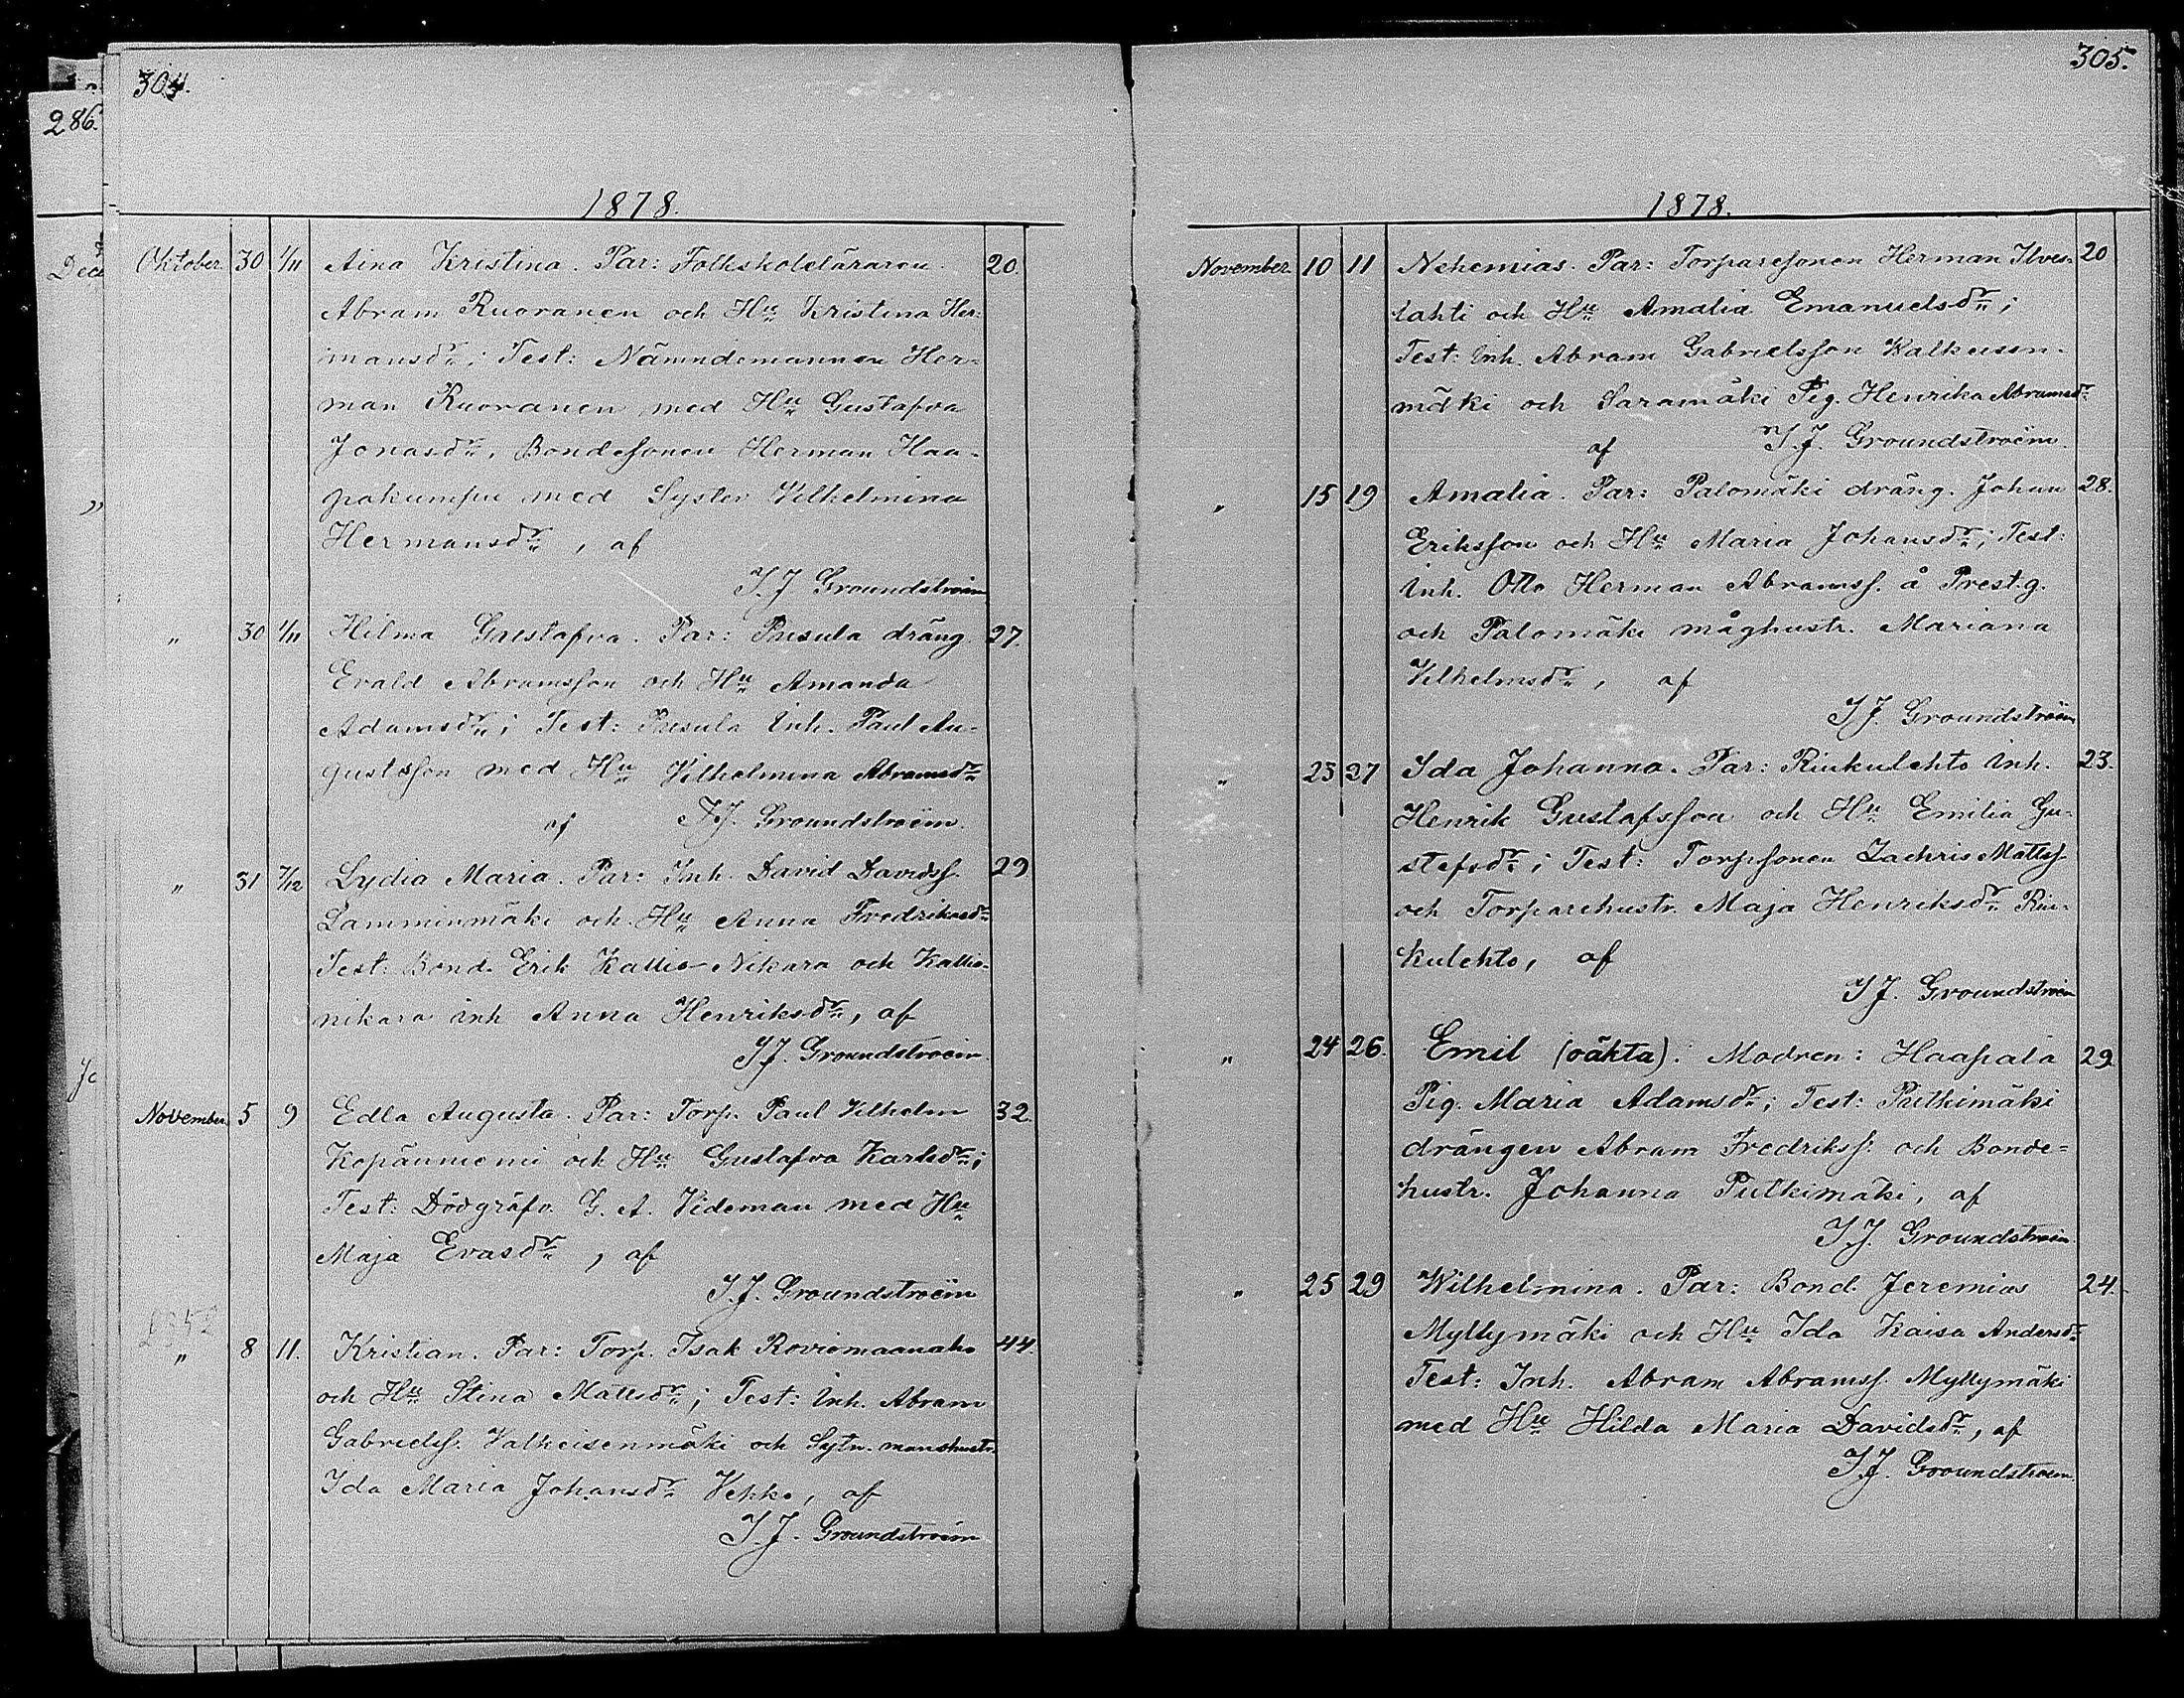 304.
286.
1878.
Oktober. 30 1/11 Aina Kristina. Par: Folkskoleläraren 20.
Abram Ruoranen och Hu Kristina Her-
mansdr; Test: Nämndemannen Her-
man Ruoranen med Hu Gustafva
Jonasdr, Bondesonen Herman Haa-
pakumpu med Syster Vilhelmina
Hermansdr, af
I. J. Groundstroëm
" 30 1/11 Hilma Gustafva. Par: Pusula dräng 27.
Evald Abramsson och Hu Amanda
Adamsdr; Test: Pusula Inh. Paul Au-
gustsson med Hu Vilhelmina Abramsdr
af I. J. Groundstroëm.
" 31 7/12 Lydia Maria. Par: Inh. David Davidss. 29
Lamminmäki och Hu Anna Fredriksdr
Test: Bond. Erik Kallio-Nikara och Kallio-
nikara inh Anna Henriksdr, af
I J. Groundstroëm
November. 5 9 Edla Augusta. Par: Torp. Paul Vilhelm 32.
Kepänniemi och Hu Gustafva Karlsdr;
Test: Dödgräfv. G. A. Videman med Hu
Maja Evasdr, af
I. J. Groundstroëm
" 8 11. Kristian. Par: Torp. Isak Roviomaanaho 44.
och Hu Stina Mattsdr; Test: Inh. Abram
Gabrielss. Valkeisenmäki och Sytn. manshustr.
Ida Maria Johansdr Vehko, af
I. J. Groundstroëm
305.
1878.
November. 10 11 Nehemias. Par: Torparesonen Herman Ilves- 20
lahti och Hu Amalia Emanuelsdr;
Test: Inh. Abram Gabrielsson Valkeisen-
mäki och Saramäki Pig. Henrika Abramsdr
af I. J. Groundstroëm.
" 15 19 Amalia. Par: Palomäki dräng. Johan 28.
Eriksson och Hu Maria Johansdr; Test:
Inh. Otto Herman Abramss. å Prest.g.
och Palomäki måghustr. Mariana
Vilhelmsdr, af
I J. Groundstroëm
" 23 27 Ida Johanna. Par: Riukulehto Inh. 23.
Henrik Gustafsson och Hu Emilia Gu-
stafsdr; Test: Torpsonen Zachris Mattss
och Torparehustr. Maja Henriksdr Riu-
kulehto, af
I J. Groundstroëm
" 24 26. Emil (oäkta). Modren: Haapala 29
Pig. Maria Adamsdr; Test: Pulkimäki
drängen Abram Fredrikss. och Bonde=
hustr. Johanna Pulkimäki, af
I. J. Groundstroëm.
" 25 29 Wilhelmina. Par: Bond. Jeremias 24.
Myllymäki och Hu Ida Kaisa Andersdr
Test: Inh. Abram Abramss. Myllymäki
med Hu Hilda Maria Davidsdr, af
I. J. Groundstroem.